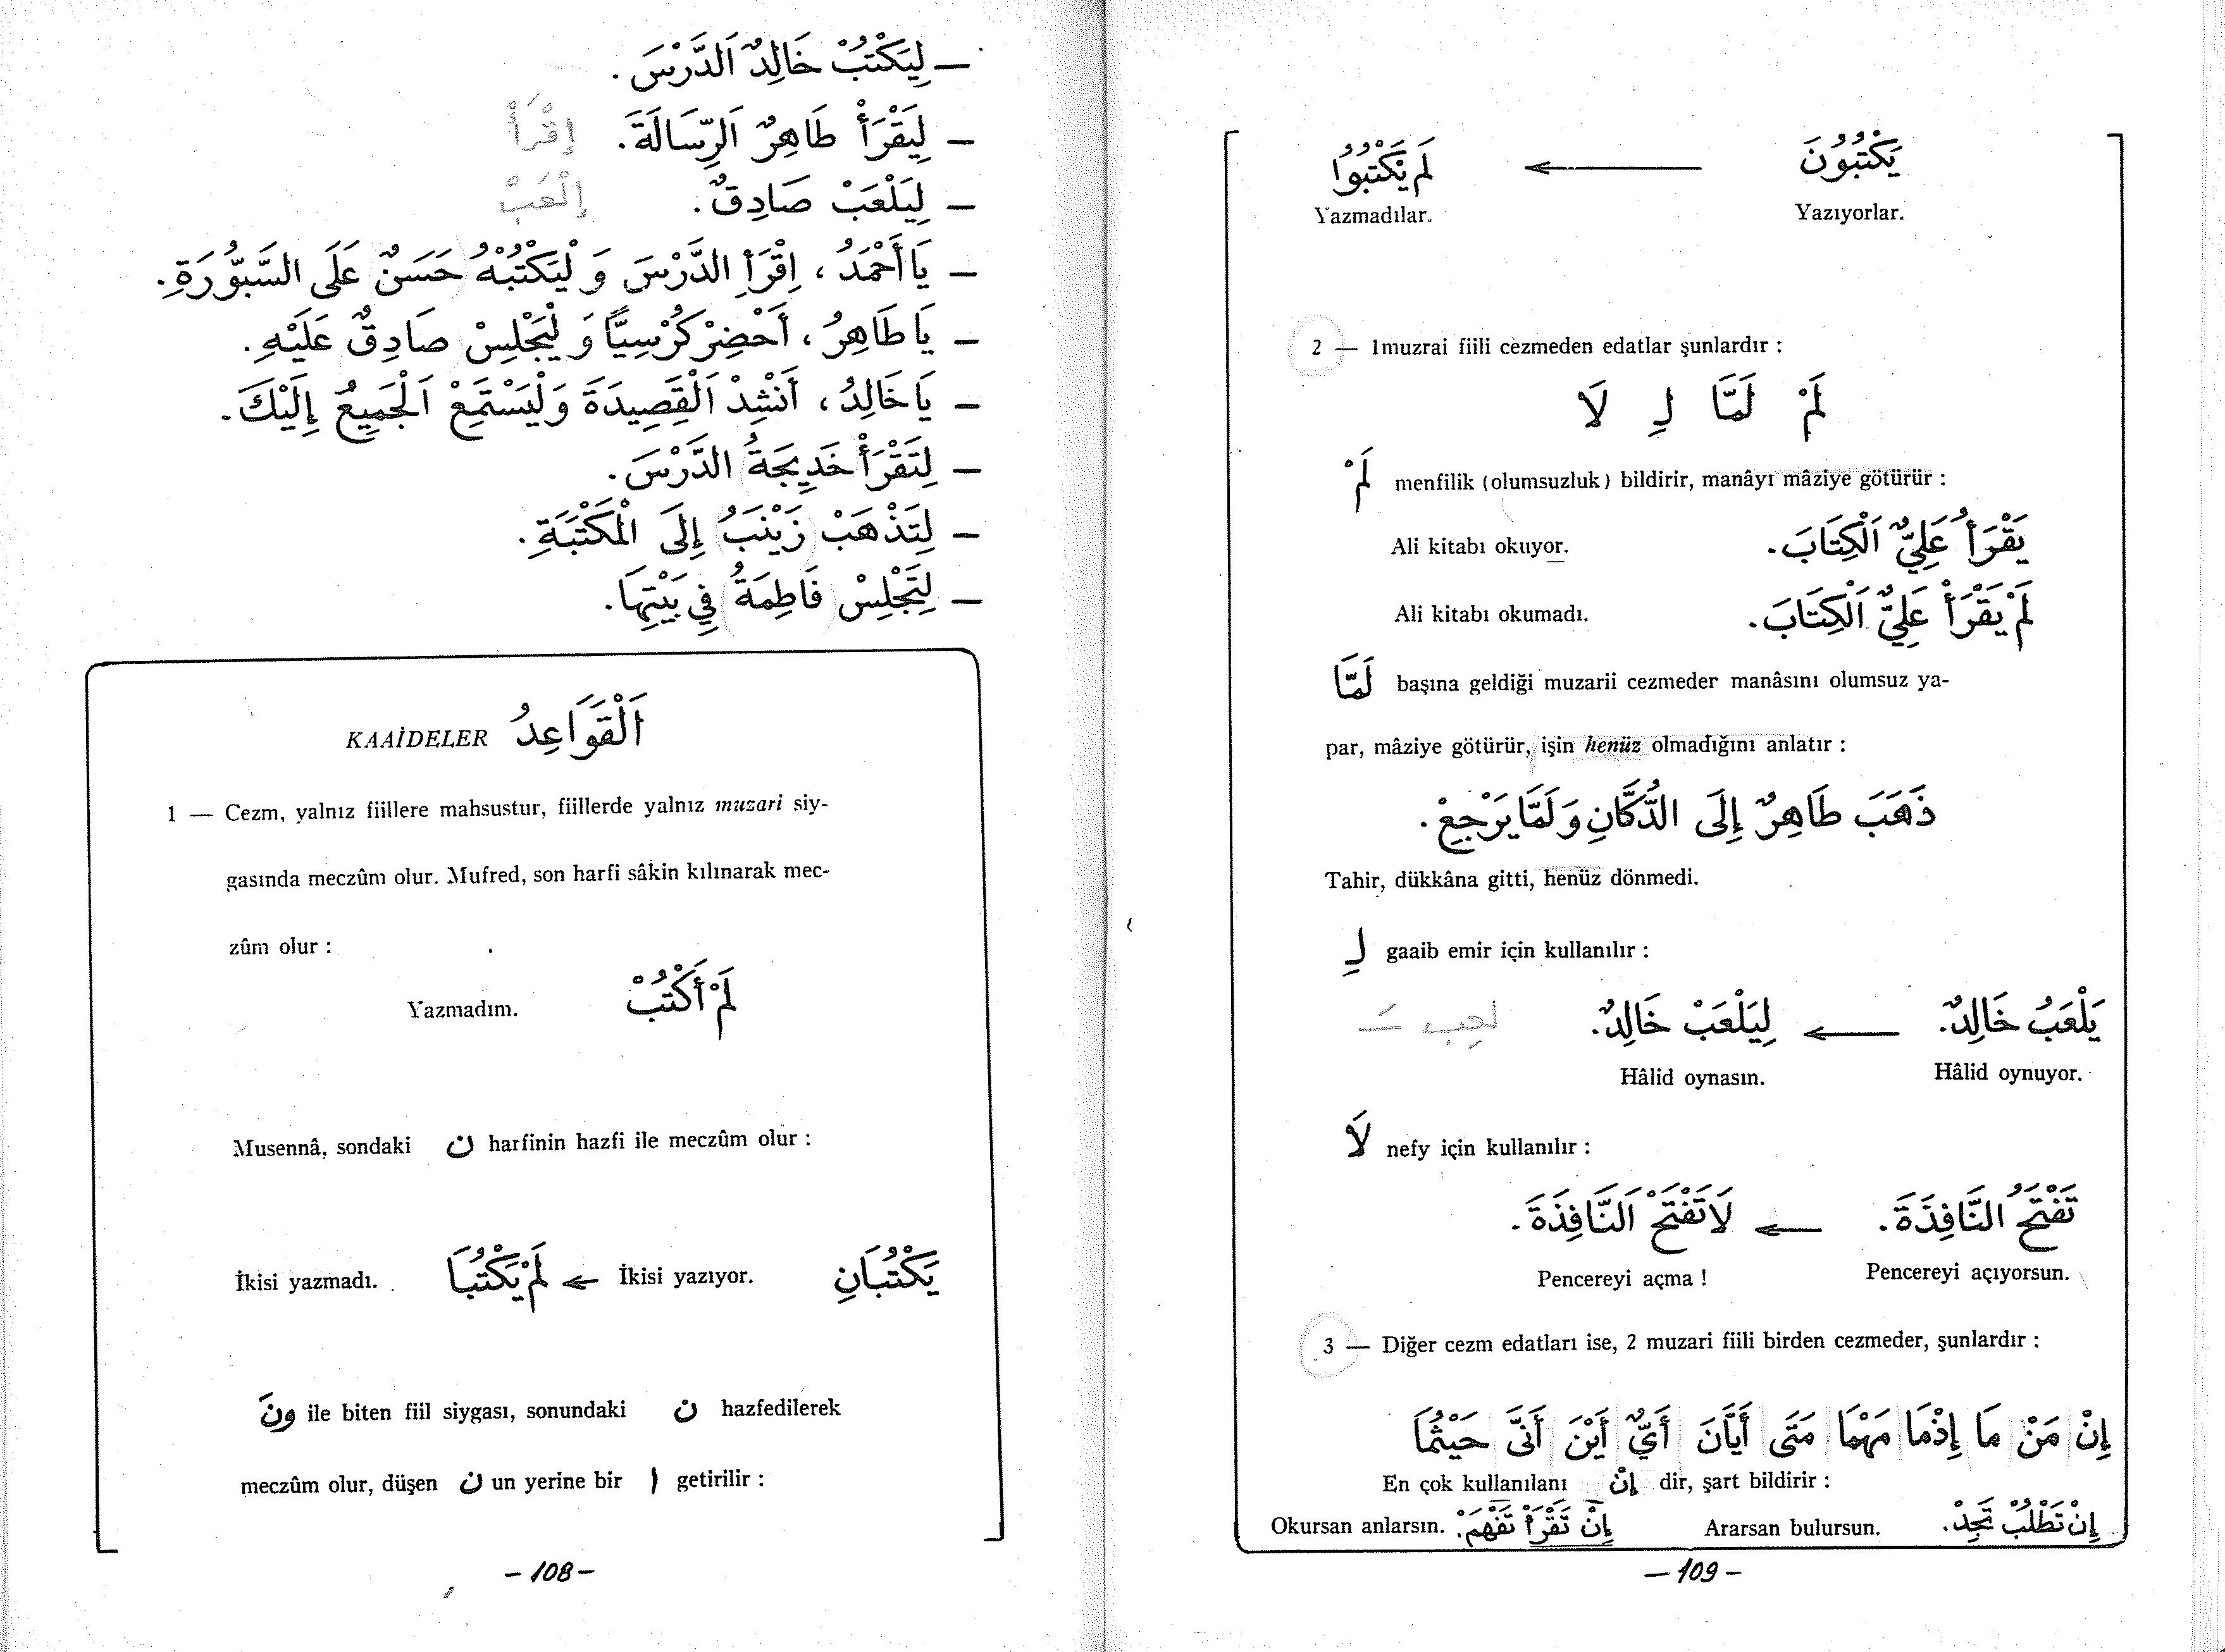 — لِيَكْتُبْ خَالِدٌ اَلدَّرْسَ .
— لِيَقْرَأْ طَاهِرٌ اَلرِّسَالَةَ . إِقْرَأْ
— لِيَلْعَبْ صَادِقٌ . إِلْعَبْ
— يَا أَحْمَدُ ، اِقْرَأِ الدَّرْسَ وَ لْيَكْتُبْهُ حَسَنٌ عَلَى السَّبُّورَةِ .
— يَا طَاهِرُ ، أَحْضِرْ كُرْسِيًّا وَ لْيَجْلِسْ صَادِقٌ عَلَيْهِ .
— يَا خَالِدُ ، أَنْشِدْ اَلْقَصِيدَةَ وَلْيَسْتَمِعْ اَلْجَمِيعُ إِلَيْكَ .
— لِتَقْرَأْ خَدِيجَةُ الدَّرْسَ .
— لِتَذْهَبْ زَيْنَبُ إِلَى الْمَكْتَبَةِ .
— لِتَجْلِسْ فَاطِمَةُ فِي بَيْتِهَا .
KAAİDELER اَلْقَوَاعِدُ
1 — Cezm, yalnız fiillere mahsustur, fiillerde yalnız muzari siy-
gasında meczûm olur. Mufred, son harfi sâkin kılınarak mec-
zûm olur :
Yazmadım. لَمْ أَكْتُبْ
Musennâ, sondaki ن harfinin hazfi ile meczûm olur :
İkisi yazmadı. لَمْ يَكْتُبَا ← İkisi yazıyor. يَكْتُبَانِ
ونَ ile biten fiil siygası, sonundaki ن hazfedilerek
meczûm olur, düşen ن un yerine bir ا getirilir :
– 108 –
يَكْتُبُونَ ← لَمْ يَكْتُبُوا
Yazmadılar. Yazıyorlar.
2 — 1muzrai fiili cezmeden edatlar şunlardır :
لَمْ لَمَّا لِ لَا
لَمْ menfilik (olumsuzluk) bildirir, manâyı mâziye götürür :
Ali kitabı okuyor. يَقْرَأُ عَلِيٌّ اَلْكِتَابَ .
Ali kitabı okumadı. لَمْ يَقْرَأْ عَلِيٌّ اَلْكِتَابَ .
لَمَّا başına geldiği muzarii cezmeder manâsını olumsuz ya-
par, mâziye götürür, işin henüz olmadığını anlatır :
ذَهَبَ طَاهِرٌ إِلَى الدُّكَّانِ وَ لَمَّا يَرْجِعْ .
Tahir, dükkâna gitti, henüz dönmedi.
لِ gaaib emir için kullanılır :
يَلْعَبُ خَالِدٌ . ← لِيَلْعَبْ خَالِدٌ . لعِب
Hâlid oynasın. Hâlid oynuyor.
لَا nefy için kullanılır :
تَفْتَحُ النَّافِذَةَ . ← لَا تَفْتَحْ اَلنَّافِذَةَ .
Pencereyi açma ! Pencereyi açıyorsun.
3 — Diğer cezm edatları ise, 2 muzari fiili birden cezmeder, şunlardır :
إِنْ مَنْ مَا إِذْمَا مَهْمَا مَتَى أَيَّانَ أَيٌّ أَيْنَ أَنَّى حَيْثُمَا
En çok kullanılanı إِنْ dir, şart bildirir :
Okursan anlarsın. إِنْ تَقْرَأْ تَفْهَمْ . Ararsan bulursun. إِنْ تَطْلُبْ تَجِدْ .
— 109 –